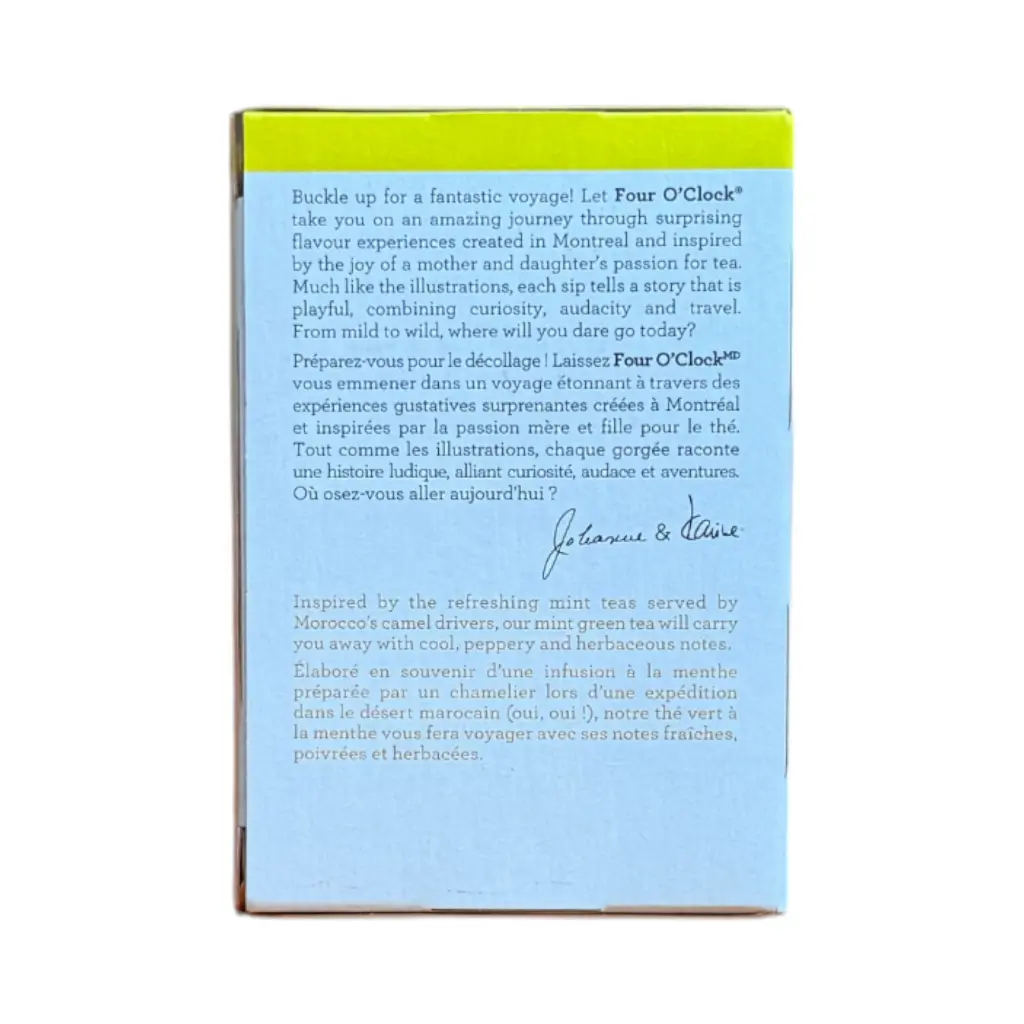 Buckle up for a fantastic voyage! Let Four O'Clock®
take you on an amazing journey through surprising
flavour experiences created in Montreal and inspired
by the joy of a mother and daughter's passion for tea.
Much like the illustrations, each sip tells a story that is
playful, combining curiosity, audacity and travel.
From mild to wild, where will you dare go today?
Préparez-vous pour le décollage ! Laissez Four O'Clockᴹᴰ
vous emmener dans un voyage étonnant à travers des
expériences gustatives surprenantes créées à Montréal
et inspirées par la passion mère et fille pour le thé.
Tout comme les illustrations, chaque gorgée raconte
une histoire ludique, alliant curiosité, audace et aventures.
Où osez-vous aller aujourd'hui ?
Johanne & Karine
Inspired by the refreshing mint teas served by
Morocco's camel drivers, our mint green tea will carry
you away with cool, peppery and herbaceous notes.
Élaboré en souvenir d'une infusion à la menthe
préparée par un chamelier lors d'une expédition
dans le désert marocain (oui, oui !), notre thé vert à
la menthe vous fera voyager avec ses notes fraîches,
poivrées et herbacées.